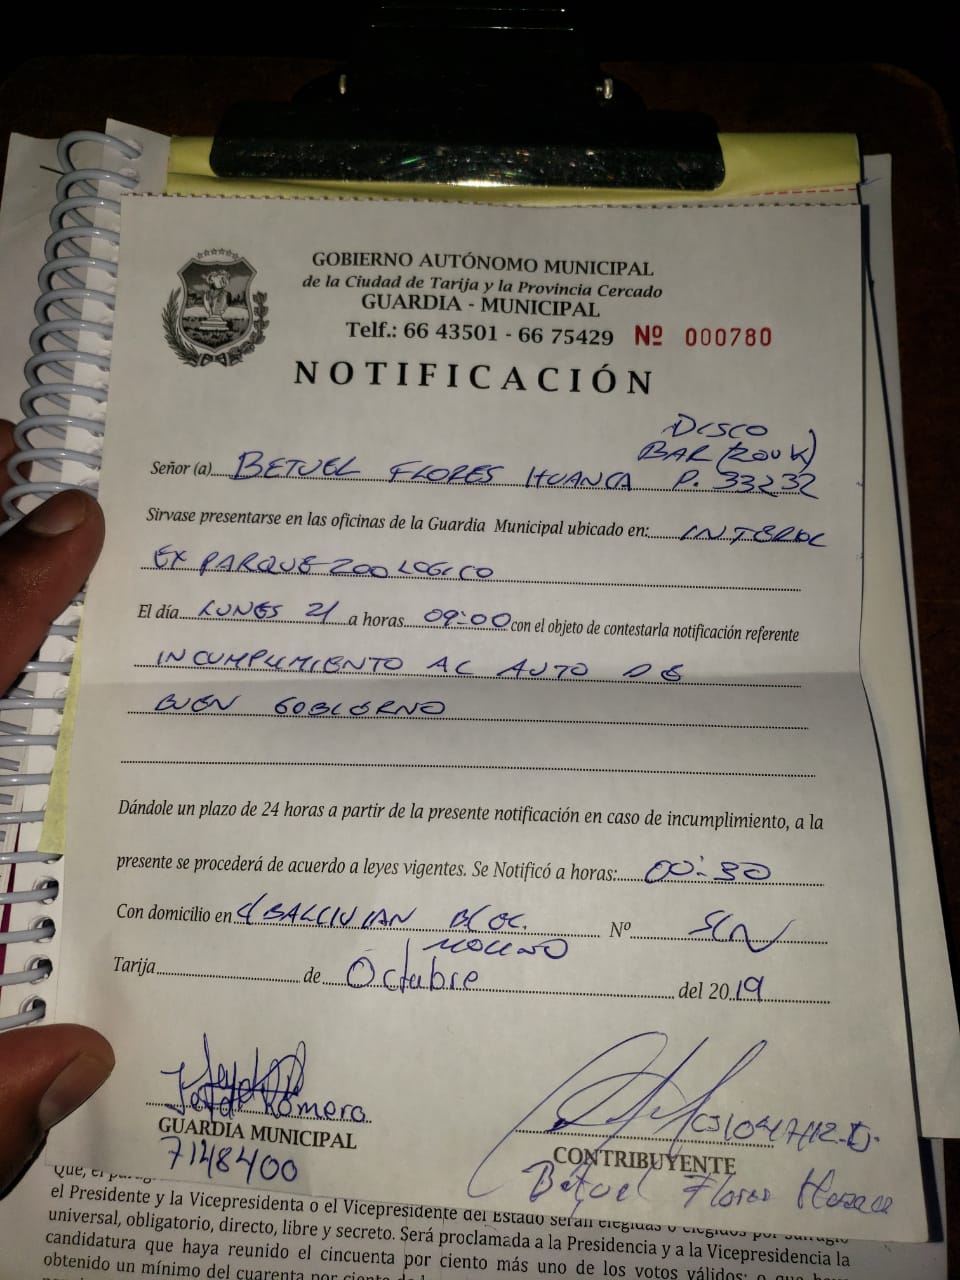 GOBIERNO AUTÓNOMO MUNICIPAL
de la Ciudad de Tarija y la Provincia Cercado
GUARDIA - MUNICIPAL
Telf.: 66 43501 - 66 75429 Nº 000780
NOTIFICACIÓN
DISCO
BAR (ZOU K)
Señor (a) BETUEL FLORES HUANCA P. 33232
Sirvase presentarse en las oficinas de la Guardia Municipal ubicado en: INTERIOR
EX PARQUE ZOOLOGICO
El día LUNES 21 a horas 09:00 con el objeto de contestarla notificación referente
INCUMPLIMIENTO AL AUTO DE
BUEN GOBIERNO
Dándole un plazo de 24 horas a partir de la presente notificación en caso de incumplimiento, a la
presente se procederá de acuerdo a leyes vigentes. Se Notificó a horas: 00:30
Con domicilio en C/BALLIVIAN Nº S/N
Tarija de Octubre del 2019
Romero
GUARDIA MUNICIPAL
7148400
CONTRIBUYENTE
Betuel Flores
Que, el
el Presidente y la Vicepresidenta o el Vicepresidente del Estado serán elegidas o elegidos por sufragio
universal, obligatorio, directo, libre y secreto. Será proclamada a la Presidencia y a la Vicepresidencia la
candidatura que haya reunido el cincuenta por ciento más uno de los votos válidos; o que haya
obtenido un mínimo del cuarenta por ciento